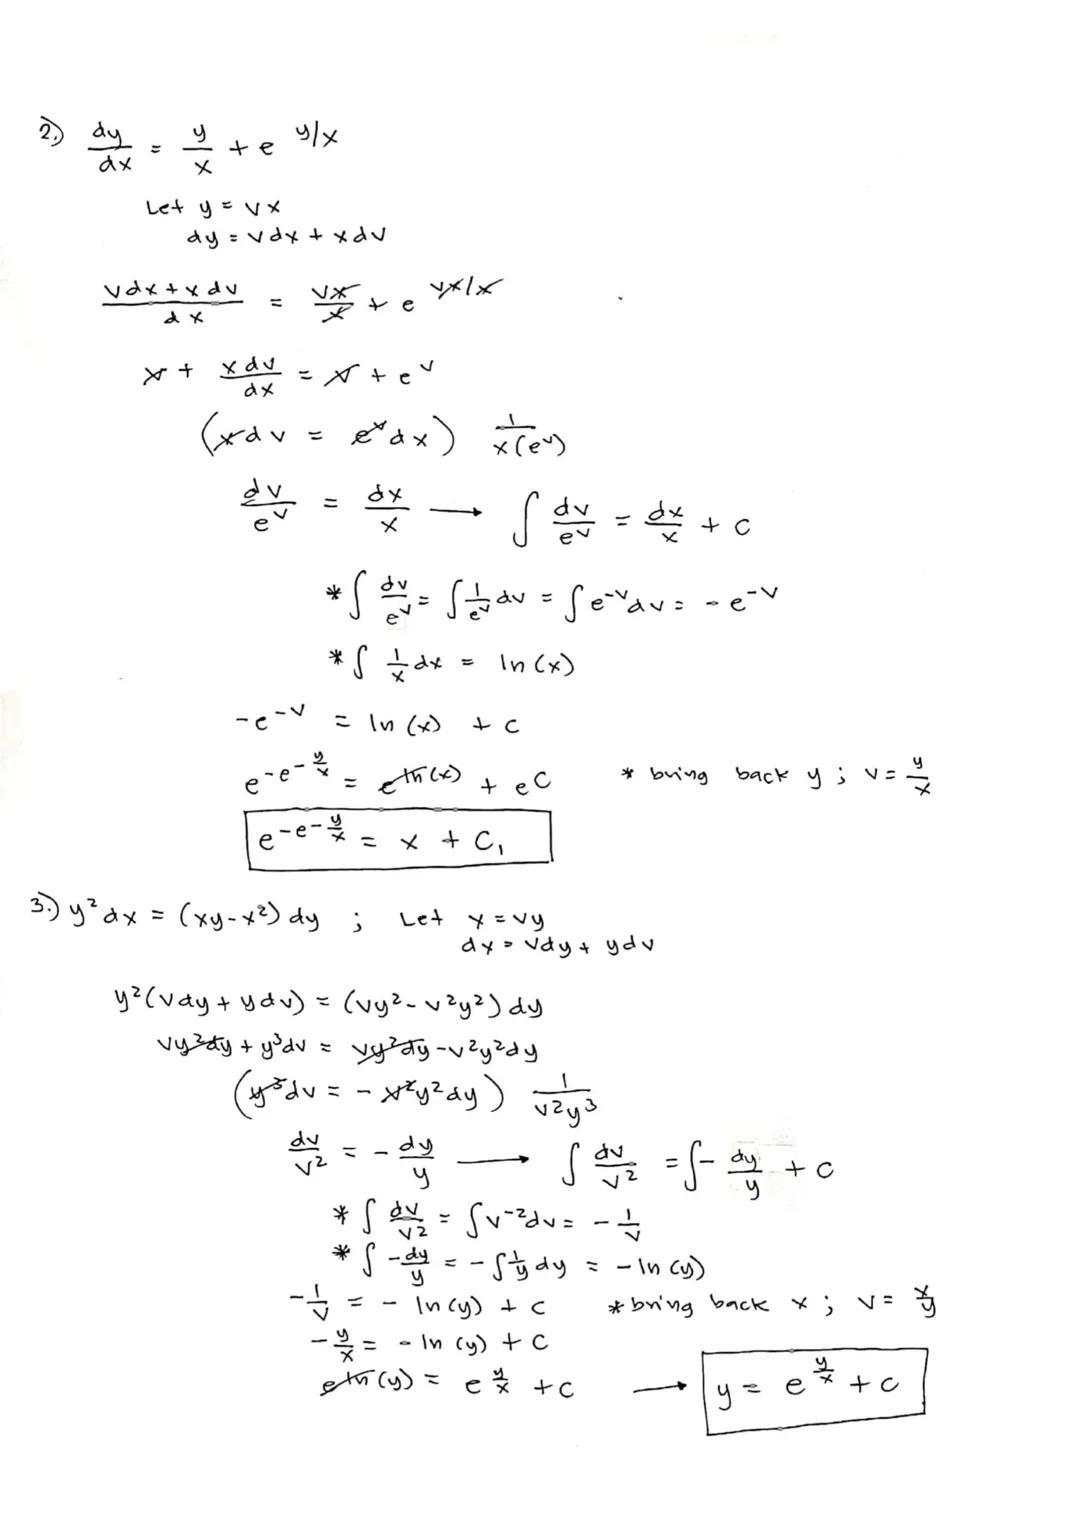 2.) dy/dx = y/x + e^(y/x)
Let y = vx
dy = vdx + xdv
(vdx + xdv)/dx = vx/x + e^(vx/x)
v + xdv/dx = v + e^v
(xdv = e^v dx) 1/(x(e^v))
dv/e^v = dx/x → ∫ dv/e^v = dx/x + c
* ∫ dv/e^v = ∫ 1/e^v dv = ∫ e^-v dv = -e^-v
* ∫ 1/x dx = ln(x)
-e^-v = ln(x) + c
e^(-e^(-y/x)) = e^ln(x) + e^c * bring back y ; v = y/x
e^(-e^(-y/x)) = x + C₁
3.) y² dx = (xy - x²) dy ; Let x = vy
dx = vdy + ydv
y²(vdy + ydv) = (vy² - v²y²) dy
vy²dy + y³dv = vy²dy - v²y²dy
(y³dv = - v²y²dy) 1/(v²y³)
dv/v² = - dy/y → ∫ dv/v² = ∫ - dy/y + c
* ∫ dv/v² = ∫ v⁻² dv = - 1/v
* ∫ -dy/y = - ∫ 1/y dy = - ln(y)
- 1/v = - ln(y) + c * bring back x ; v = x/y
- y/x = - ln(y) + c
e^ln(y) = e^(y/x) + c → y = e^(y/x) + c